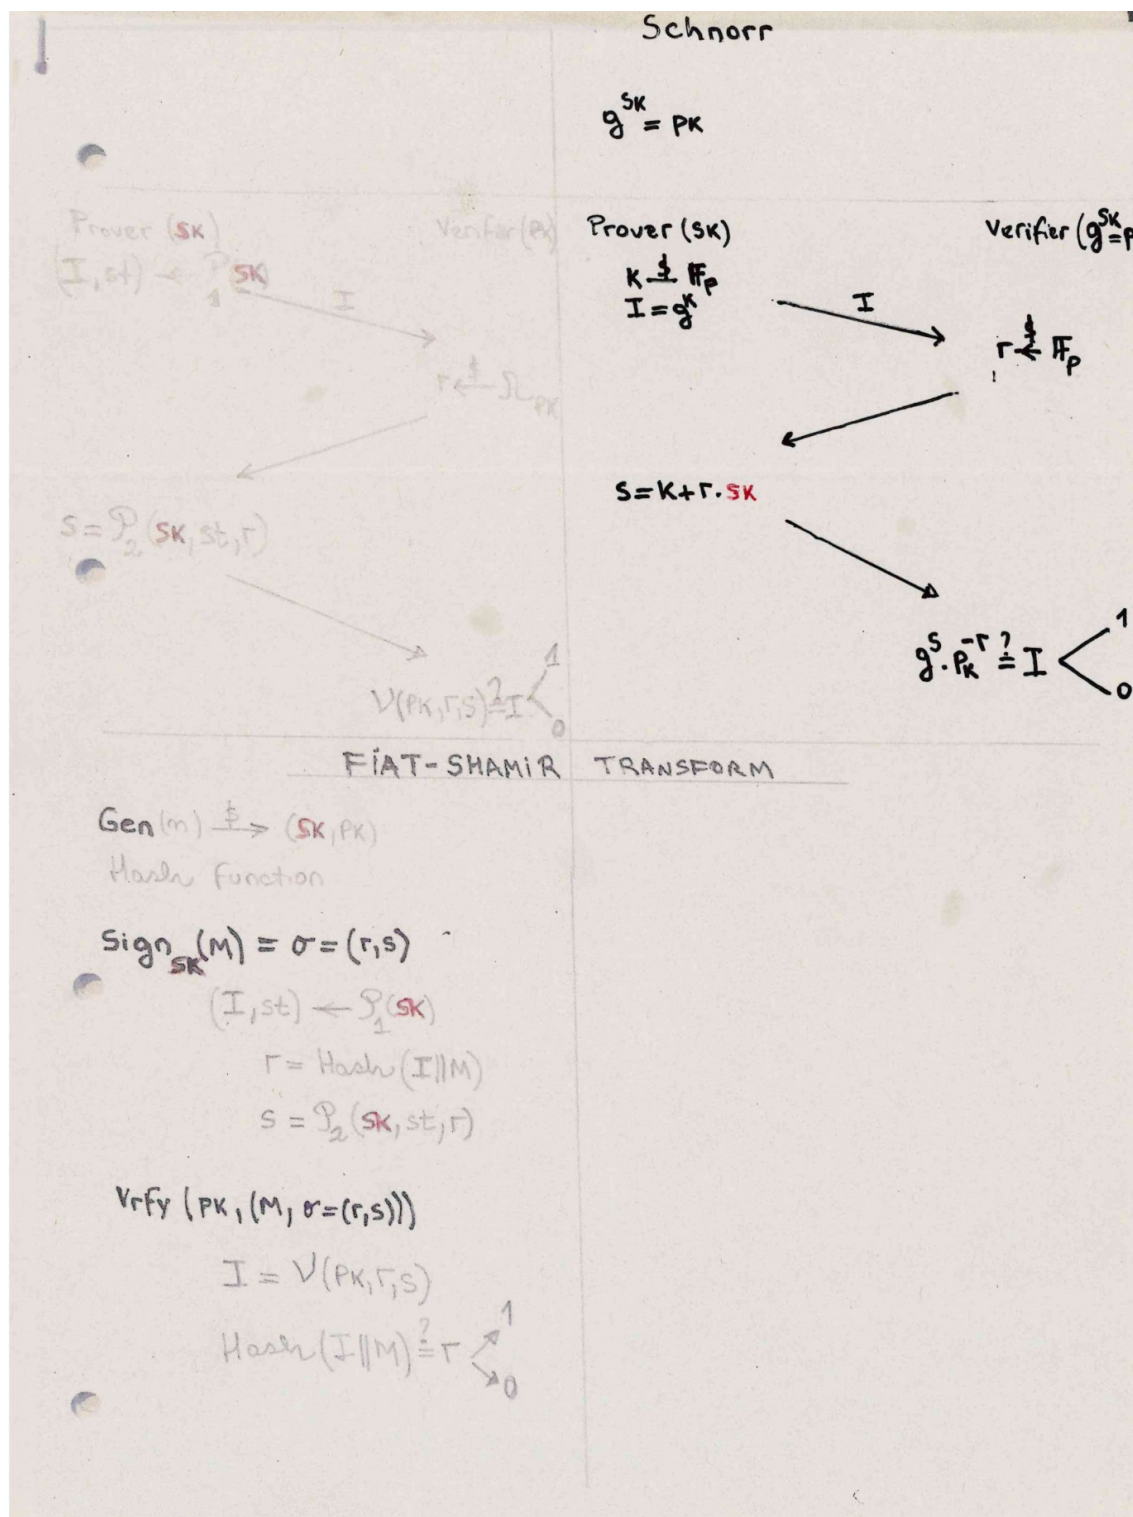 Schnorr
g^SK = PK
Prover (SK)
Verifier (PK)
(I, st) ← P_1(SK)
I
r ←$ Ω_PK
S = P_2(SK, st, r)
V(PK, r, s) ≟ I
1
0
Prover (SK)
Verifier (g^SK = P
K ←$ 𝔽_p
I = g^K
I
r ←$ 𝔽_p
s = K + r · SK
g^s · PK^-r ≟ I
1
0
FIAT-SHAMIR TRANSFORM
Gen(n) →$ (SK, PK)
Hash Function
Sign_SK(M) = σ = (r, s)
(I, st) ← P_1(SK)
r = Hash(I||M)
s = P_2(SK, st, r)
Vrfy (PK, (M, σ = (r, s)))
I = V(PK, r, s)
Hash(I||M) ≟ r
1
0